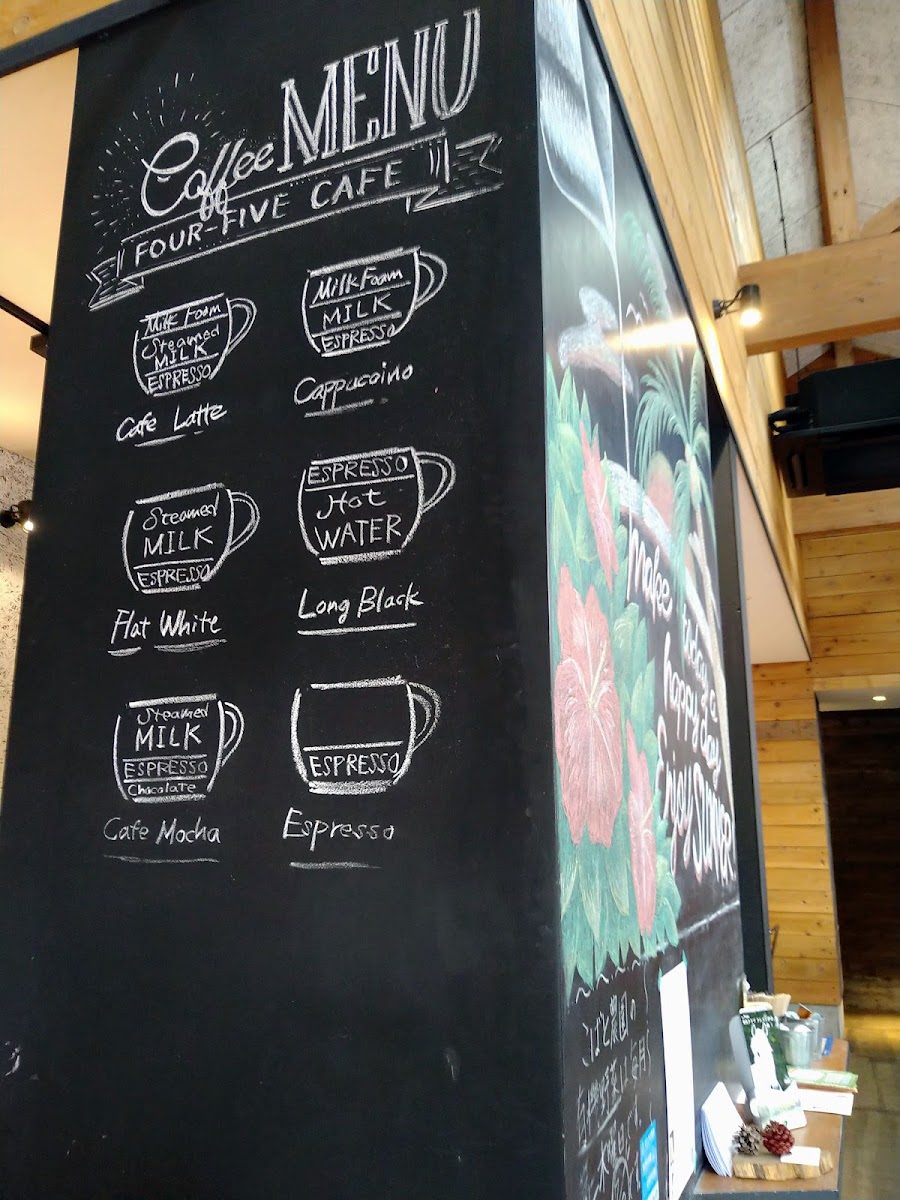 Coffee MENU
FOUR-FIVE CAFE
Milk Foam
Steamed
MILK
ESPRESSO
Cafe Latte
Milk Foam
MILK
ESPRESSO
Cappuccino
Steamed
MILK
ESPRESSO
Flat White
ESPRESSO
Hot
WATER
Long Black
Steamed
MILK
ESPRESSO
Chocolate
Cafe Mocha
ESPRESSO
Espresso
make
today a
happy day
Enjoy SUMMER
こばと農園の